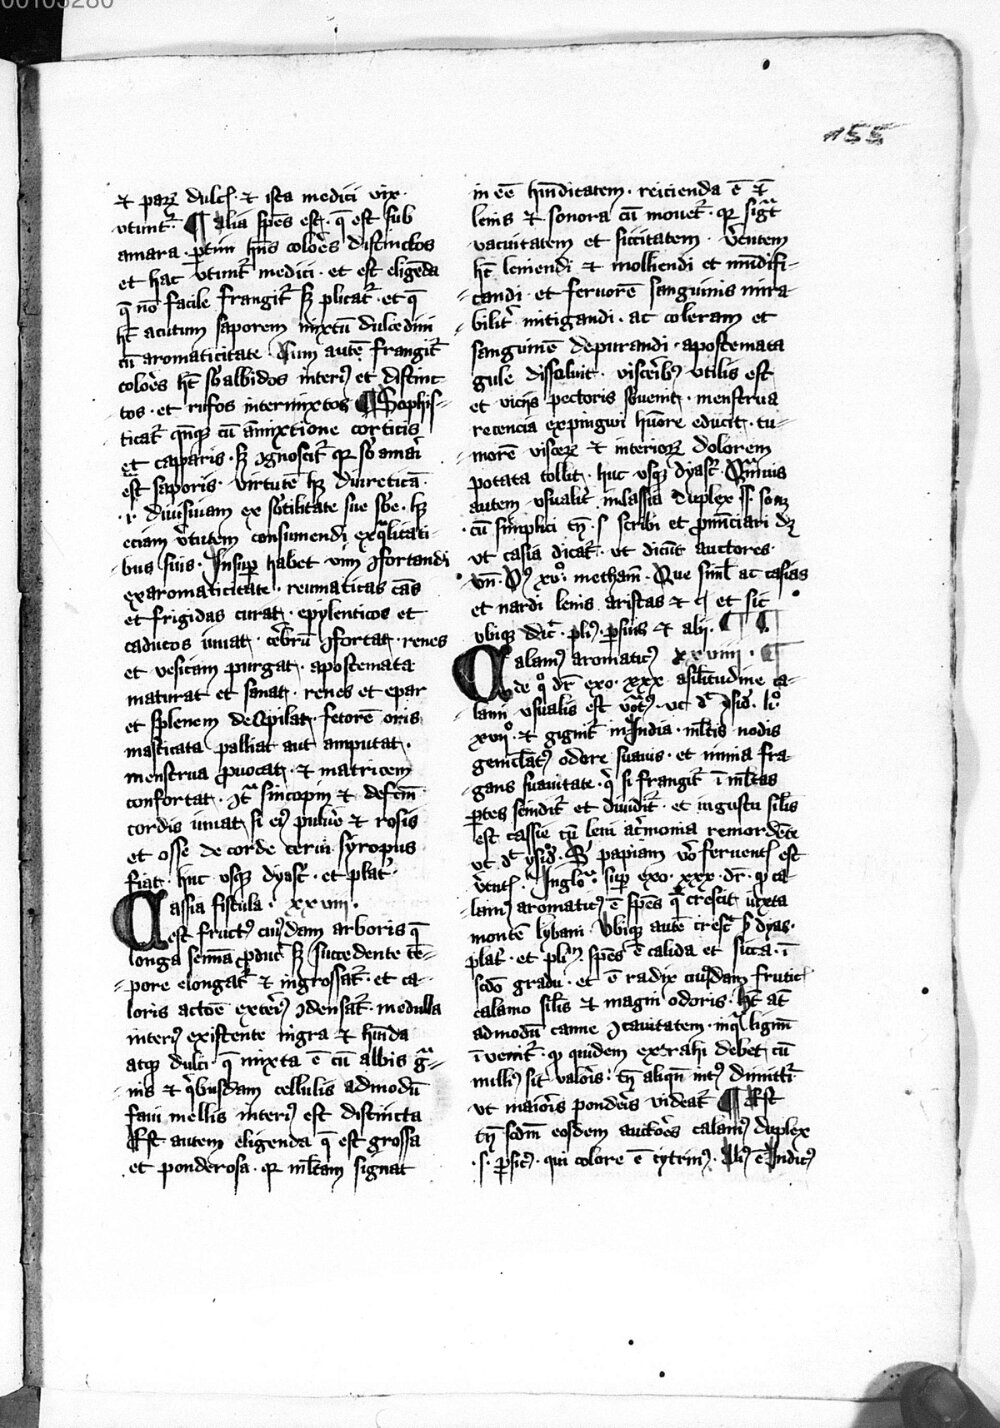 00103280
155
et parum dulcis et ista medici vix
utuntur ¶ Alia spēs est q̄ est sub
amara partim hn̄s colores distinctos
et hac utunt᷑ medici et est eligēda
q̄ nō facile frangit᷑ sꝫ plicat᷑ et q̄
hꝫ acutum saporem mixtū dulcedini
cū aromaticitate Cum autē frangit᷑
colores hꝫ subalbidos interiꝰ et distinc
tos et rufos intermixtos ¶ Sophis-
ticat᷑ qn̄qꝫ cū āmixtione corticis
capparis sꝫ ꝯgnoscit᷑ qꝛ sb̄amari
est saporis virtutē hꝫ diureticā
.i. divisivam ex sb̄tilitate sue sb̄e hꝫ
eciam v̓tutem consumendi ex q̄litati-
bus suis Insup̲ habet vim ꝯfortandi
ex aromaticitate reumaticas cās
et frigidas curat epylenticos et
caducos iuvat cerebrū ꝯfortat renes
et vesicam purgat apostemata
maturat et sanat renes et epar
et splenem deopilat fetorē oris
masticata palliat aut amputat
menstrua ꝓvocat et matricem
confortat ꝯtra sincopim et defcm̄
cordis iuvat si eiꝰ pulv̓e et rosis
et osse de corde cervi syropus
fiat huc usqꝫ dyasc᷑ et plat᷑
Cassia fistula xxviii
est fructꝰ cuiꝰdam arboris q̄
longa semīa ꝓducit sꝫ succedente tē-
pore elongat᷑ et ingrossat᷑ et ca-
loris actōe exteriꝰ ꝯdensat᷑ medulla
interiꝰ existente nigra et hūida
atqꝫ dulci q̄ mixta ē cū albis gra-
nis et q̓busdam cellulis admodū
favi mellis interiꝰ est distincta
Est autem eligenda q̄ est grossa
et ponderosa qꝛ ml̄tam signat
in eē hūiditatem reicienda ē
lenis et sonora cū movet᷑ qꝛ sigt
vacuitatem et siccitatem v̓tutem
hꝫ leniendi et molliendi et mūdifi-
candi et fervorē sanguinis mira
bilit᷑ mitigandi ac coleram et
sanguinē depurandi apostemata
gule dissolvit viscerib̓ utilis est
et viciis pectoris subvenit menstrua
retencia expingui hūore educit tu-
morē viscerꝝ et interiorꝝ dolorem
potata tollit huc usqꝫ dyasc᷑ Quāvis
autem usualit᷑ in cassia duplex
cū simplici tn̄ s scribi et ꝓnūciari dꝫ
ut casia dicat᷑ ut dicūt auctores
Que siml̄ ac casias
et nardi lenis aristas et et sic
ubiqꝫ dic᷑ pliꝰ ꝑsius et alij
Calamꝰ aromaticꝰ xxviiii
de q̊ dr̄ exo xxx a similitudine ca-
lami usualis est vocatꝰ ut dc̄ ysid᷑ li
xvii et gignit᷑ in India ml̄tis nodis
geniculatꝰ odore suavis et nimia fra
grans suavitate q̓ si frangit᷑ ī ml̄tas
ꝑtes scindit᷑ et dividit᷑ et in gustu similis
est cassie tn̄ levi acrimonia remordēte
ut dc̄ ysid᷑ Sꝫ papiam vō ferventꝭ est
v̓tutꝭ sup̲ exo xxx dr̄ qꝫ ca
lamꝰ aromaticꝰ ē spēs q̄ crescit iuxta
montē lybani Ubiqꝫ autē cresc᷑ dyas
plat᷑ et pliꝰ spēs ē calida et sicca ī
scdō gradu et ē radix cuiꝰdam fruticꝭ
calamo similis et magni odoris Hꝫ aūt
admodū canne ꝯcavitatem in q̄ lignū
ī venit᷑ qꝫ quidem extrahi debet cū
nulliꝰ sit valoris tn̄ aliqn̄ intꝰ dimittit᷑
ut maioris ponderis videat᷑ ¶ Est
tn̄ scdm̄ eosdem auctores calamꝰ duplex
.s. ꝑsicꝰ qui colore ē cytrinꝰ Aliꝰ ē Indicꝰ